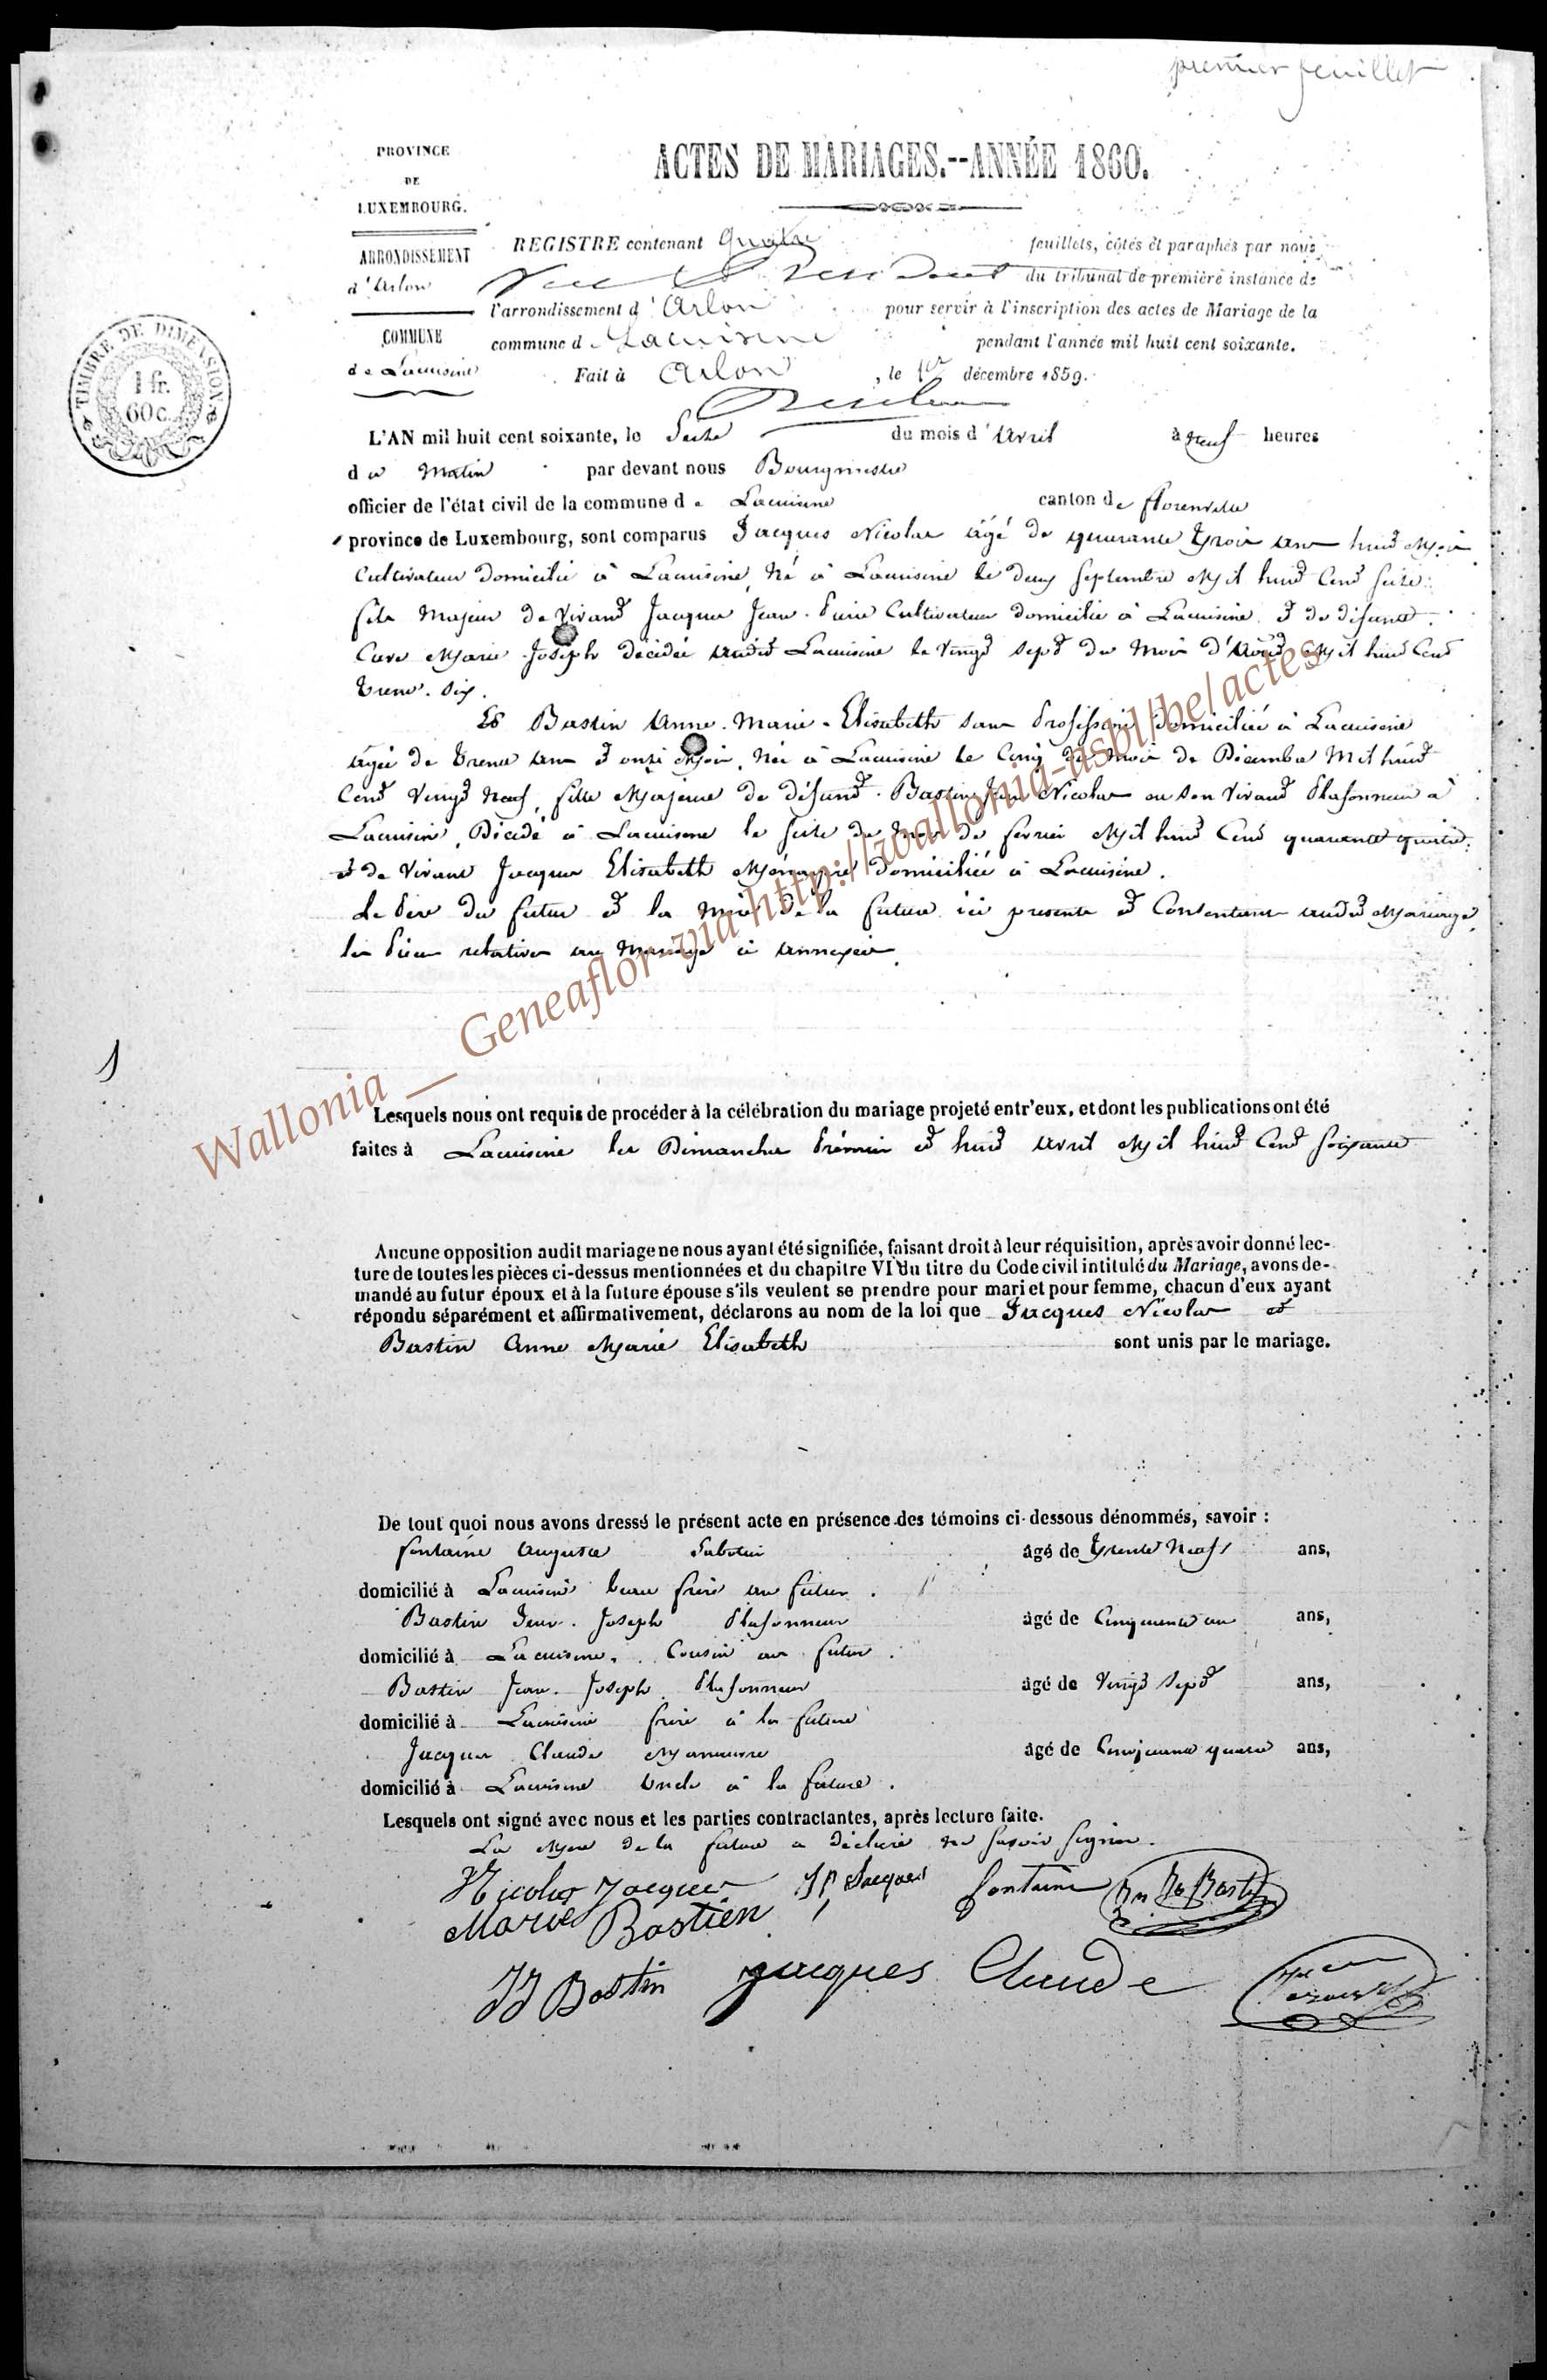 premier feuillet
PROVINCE
DE
LUXEMBOURG.
ACTES DE MARIAGES.--ANNÉE 1860.
ARRONDISSEMENT
d'Arlon
COMMUNE
de Lacuisine
TIMBRE DE DIMENSION
1 fr.
60 c.
REGISTRE contenant quatre feuillets, côtés et paraphés par nous
du tribunal de première instance de
l'arrondissement d'Arlon pour servir à l'inscription des actes de Mariage de la
commune de Lacuisine pendant l'année mil huit cent soixante.
Fait à Arlon, le 1er décembre 1859.
L'AN mil huit cent soixante, le Seize du mois d'Avril à neuf heures
du Matin par devant nous Bourgmestre
officier de l'état civil de la commune de Lacuisine canton de florenville
province de Luxembourg, sont comparus Jacques Nicolas âgé de quarante trois ans huit Mois
Cultivateur domicilié à Lacuisine, Né à Lacuisine le deux Septembre Mil huit Cent Seize.
fils Majeur de Vivant Jacques Jean-Pierre Cultivateur domicilié à Lacuisine et de défunte
Marie Joseph décédée audit Lacuisine le Vingt sept du Mois d'Aout Mil huit Cent
trente-six.
Et Bastin Anne-Marie-Elisabeth sans Profession domiciliée à Lacuisine
âgée de trente ans et onze Mois, Née à Lacuisine le Cinq du Mois de Décembre Mil huit
Cent Vingt Neuf, fille Majeure de défunt Bastin Jean Nicolas en son Vivant Plafonneur à
Lacuisine, Décédé à Lacuisine le Seize du Mois de fevrier Mil huit Cent quarante quatre
et de Vivante Jacques Elisabeth Ménagère domiciliée à Lacuisine.
Le Père du futur et la Mère de la future ici presents et Consentant audit Mariage,
les Pièces relatives au Mariage ci annexées.
1
Wallonia __ Geneaflor via http://wallonia-asbl.be/actes
Lesquels nous ont requis de procéder à la célébration du mariage projeté entr'eux, et dont les publications ont été
faites à Lacuisine les Dimanches Prémier et huit Avril Mil huit Cent Soixante
Aucune opposition audit mariage ne nous ayant été signifiée, faisant droit à leur réquisition, après avoir donné lec-
ture de toutes les pièces ci-dessus mentionnées et du chapitre VI du titre du Code civil intitulé du Mariage, avons de-
mandé au futur époux et à la future épouse s'ils veulent se prendre pour mari et pour femme, chacun d'eux ayant
répondu séparément et affirmativement, déclarons au nom de la loi que Jacques Nicolas et
Bastin Anne Marie Elisabeth sont unis par le mariage.
De tout quoi nous avons dressé le présent acte en présence des témoins ci-dessous dénommés, savoir :
fontaine Auguste Sabotier âgé de trente Neuf ans,
domicilié à Lacuisine beau frère au futur.
Bastin Jean-Joseph Plafonneur âgé de Cinquante un ans,
domicilié à Lacuisine, Cousin au futur.
Bastin Jean-Joseph Plafonneur âgé de Vingt Sept ans,
domicilié à Lacuisine frère à la future
Jacques Claude Manœuvre âgé de Cinquante quatre ans,
domicilié à Lacuisine Oncle à la future.
Lesquels ont signé avec nous et les parties contractantes, après lecture faite.
La Mère de la future a déclaré ne Savoir Signer.
Nicolas Jacques JP Jacques fontaine Bastin
Marie Bastien
JJ Bastin jacques Claude